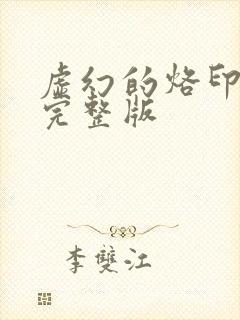 虚幻的烙印
完整版
李雙江